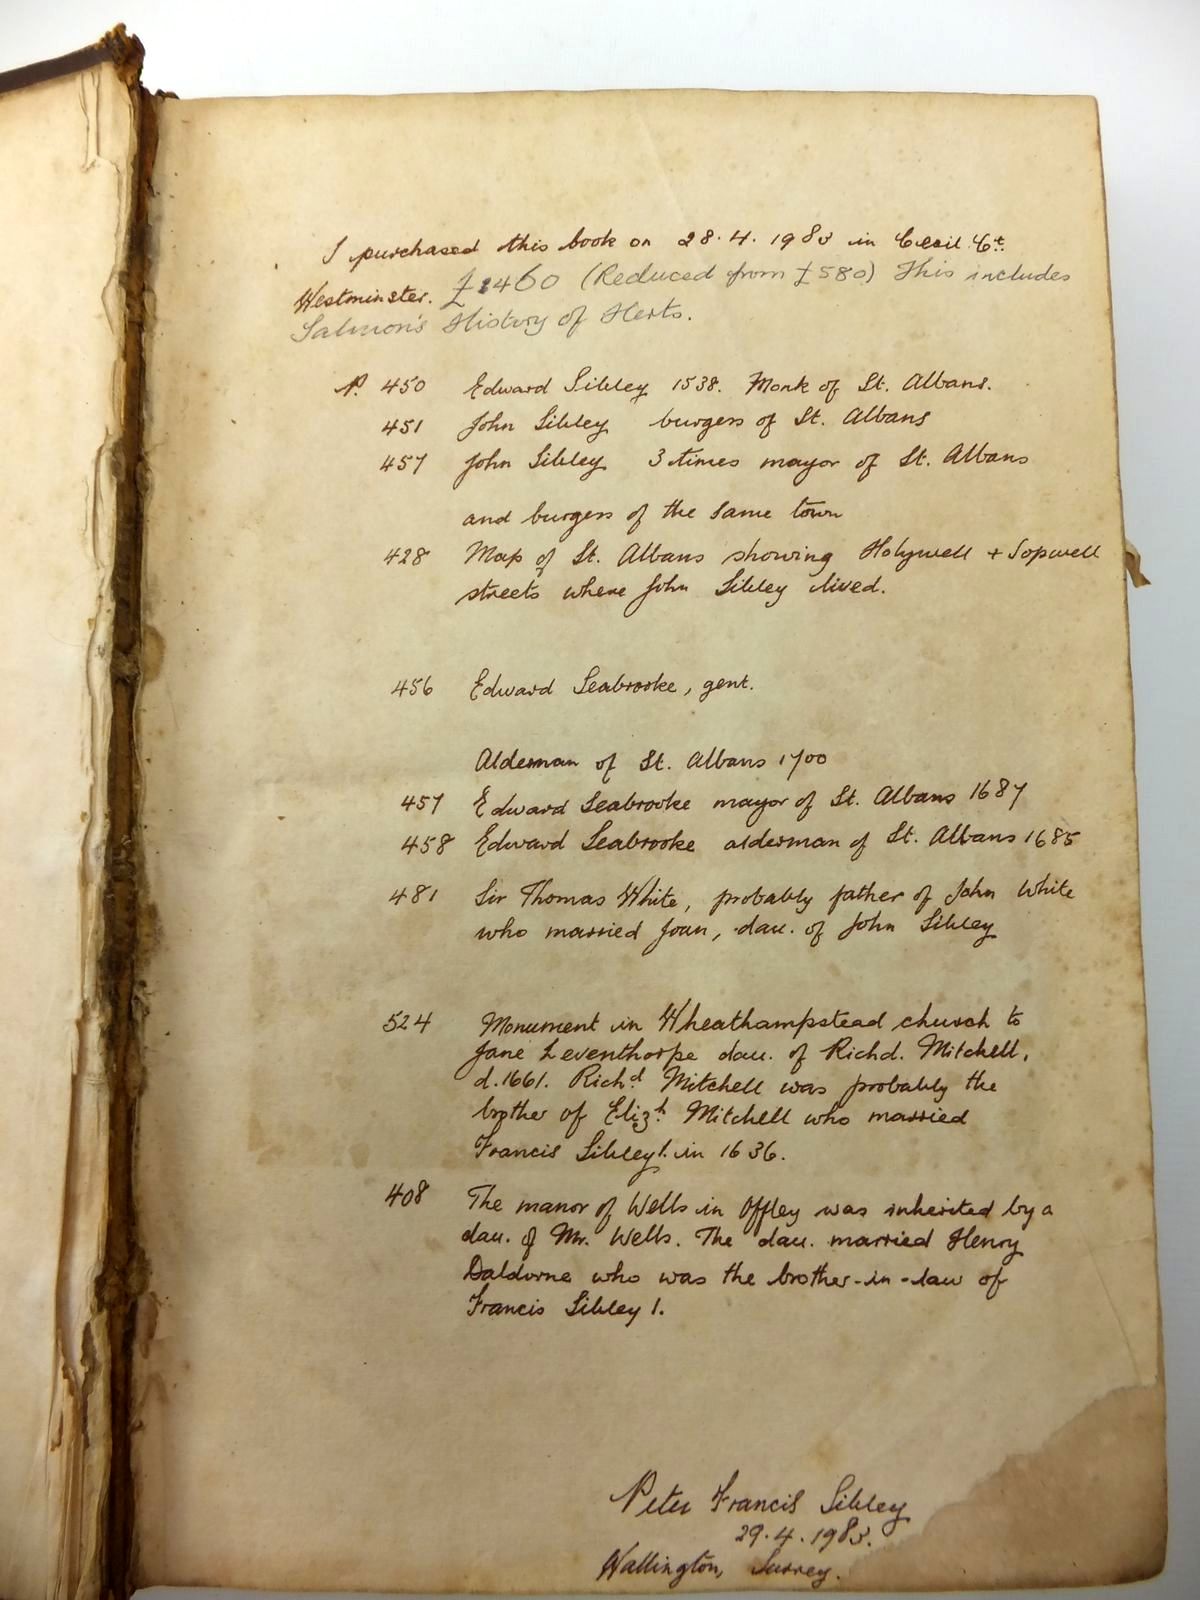 I purchased this book on 28.4.1983 in Cecil Ct.
Westminster. £460 (Reduced from £580) This includes
Salmon's History of Herts.
P. 450 Edward Sibley 1538. Monk of St. Albans.
451 John Sibley burgess of St. Albans
457 John Sibley 3 times mayor of St. Albans
and burgess of the same town
428 Map of St. Albans showing Holywell + Sopwell
streets where John Sibley lived.
456 Edward Seabrooke, gent.
Alderman of St. Albans 1700
457 Edward Seabrooke mayor of St. Albans 1687
458 Edward Seabrooke alderman of St. Albans 1685
481 Sir Thomas White, probably father of John White
who married Joan, dau. of John Sibley
524 Monument in Wheathampstead church to
Jane Leventhorpe dau. of Richd. Mitchell,
d.1661. Richd. Mitchell was probably the
brother of Elizh. Mitchell who married
Francis Sibley 1. in 1636.
408 The manor of Wells in Offley was inherited by a
dau. of Mr. Wells. The dau. married Henry
Daldorne who was the brother-in-law of
Francis Sibley 1.
Peter Francis Sibley
29.4.1983.
Wallington, Surrey.